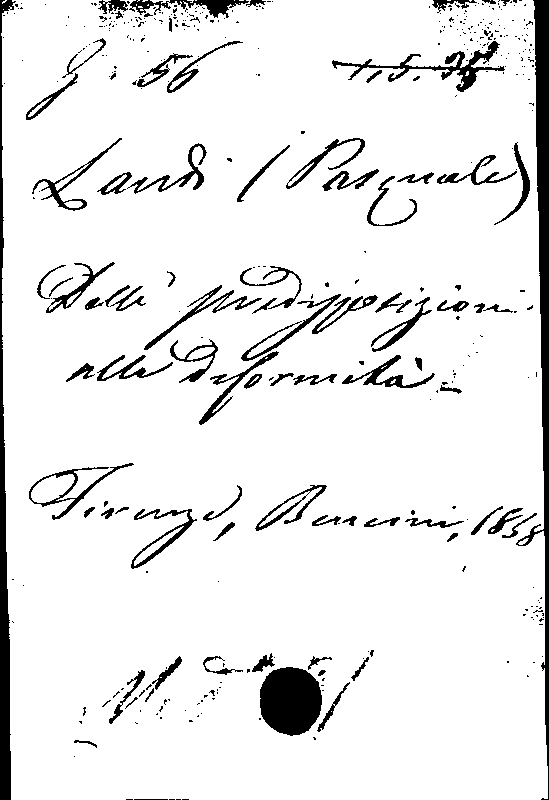 G. 56 1, 5. 38
Landi (Pasquale)
Delle predisposizioni
alle deformità
Firenze, Bencini, 1858
Med